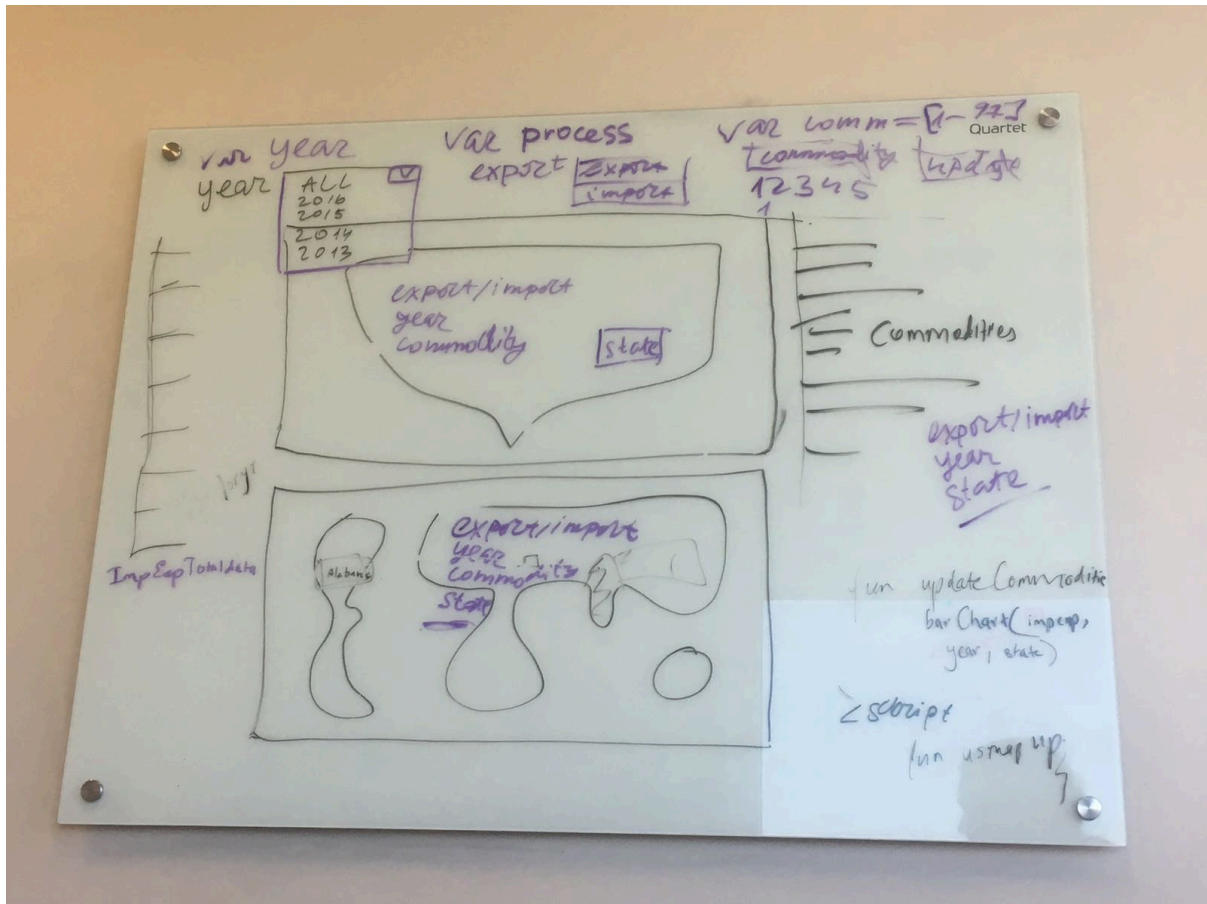 var year
year
ALL
2016
2015
2014
2013
var process
export
export
import
var comm = [1-97]
Quartet
commodity update
1 2 3 4 5
1
export/import
year
commodity
state
Commodities
export/import
year
state
ImpExpTotaldata
Alabama
export/import
year
commodity
state
fun updateCommoditie
barChart(impexp,
year, state)
<script
fun usmap up